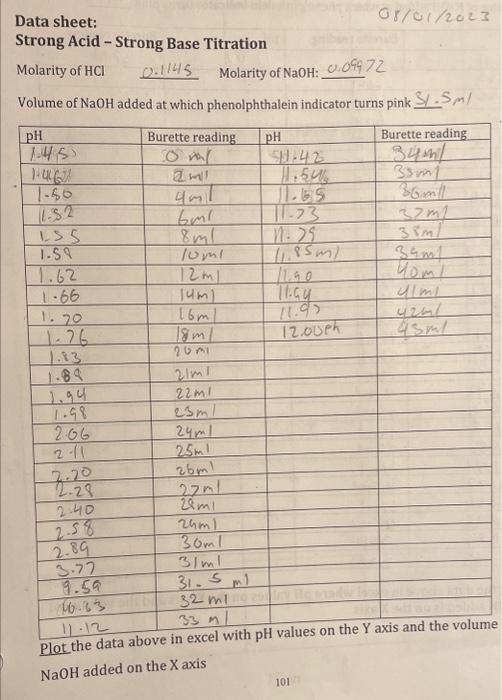 08/01/2023
Data sheet:
Strong Acid – Strong Base Titration
Molarity of HCl 0.1145 Molarity of NaOH: 0.09972
Volume of NaOH added at which phenolphthalein indicator turns pink 31.5ml
pH Burette reading pH Burette reading
1.45 0 ml 11.42 34ml
1.46 2 ml 11.54 35ml
1.50 4ml 11.65 36ml
1.52 6ml 11.73 37ml
1.55 8ml 11.79 38ml
1.59 10ml 11.85ml 39ml
1.62 12ml 11.90 40ml
1.66 14ml 11.94 41ml
1.70 16ml 11.97 42ml
1.76 18ml 12.00 43ml
1.83 20ml
1.89 21ml
1.94 22ml
1.98 23ml
2.06 24ml
2.11 25ml
2.20 26ml
2.28 27ml
2.40 28ml
2.58 29ml
2.89 30ml
3.77 31ml
9.59 31.5 ml
10.83 32 ml
11.12 33 ml
Plot the data above in excel with pH values on the Y axis and the volume
NaOH added on the X axis
101